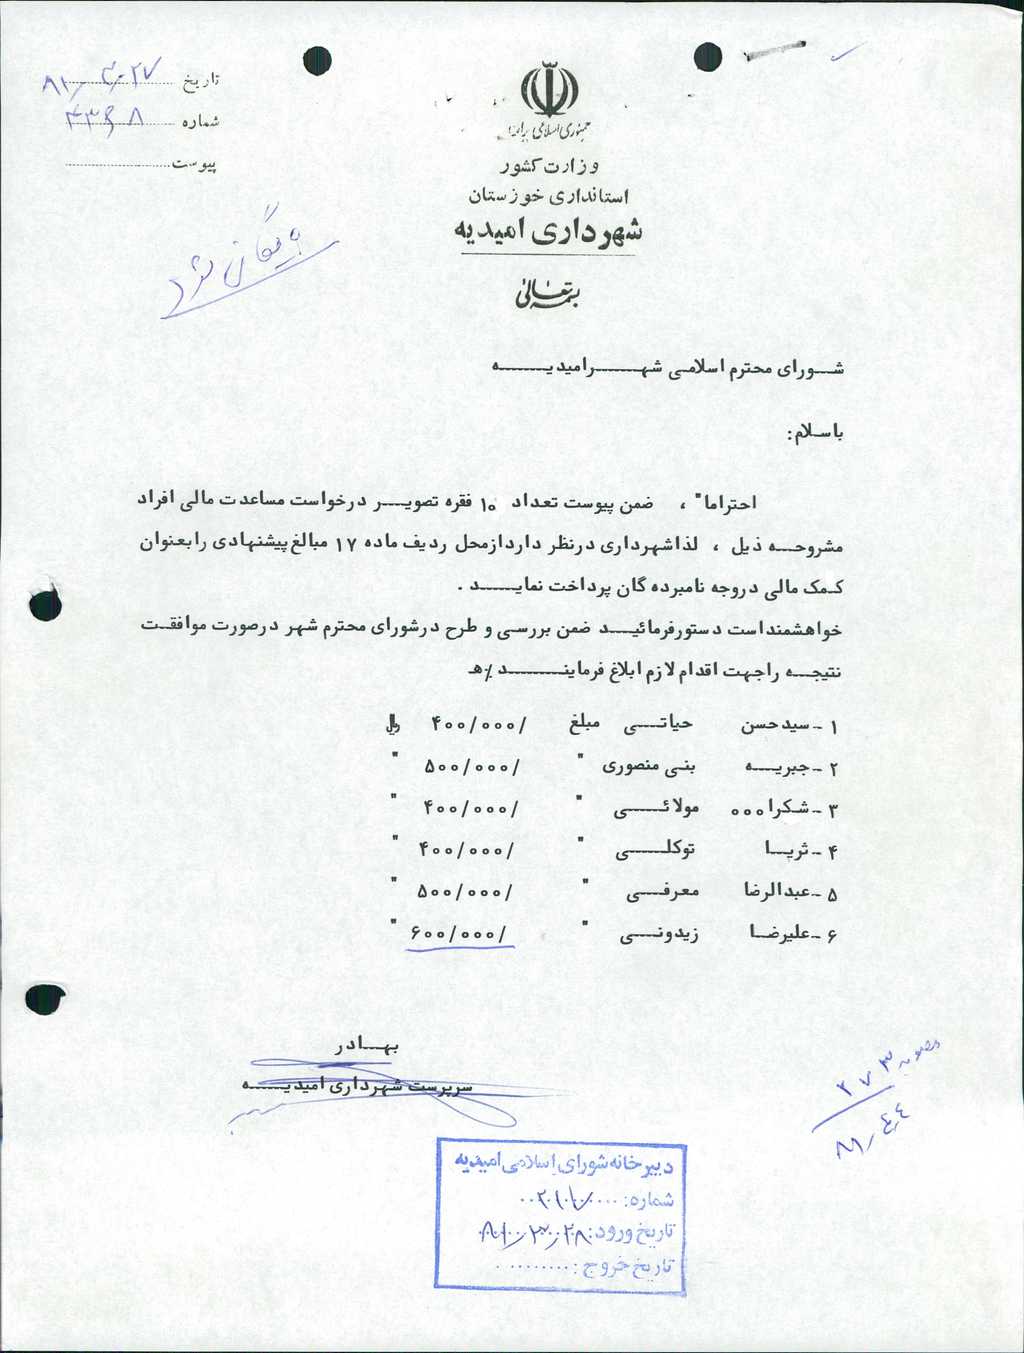 تاریخ ۸۱/۳/۲۷
شماره ۴۳۶۸
پیوست
جمهوری اسلامی ایران
وزارت کشور
استانداری خوزستان
شهرداری امیدیه
بسمه تعالی
بایگانی شود
شورای محترم اسلامی شهرامیدیه
باسلام:
احتراما" ، ضمن پیوست تعداد ۱۰ فقره تصویر درخواست مساعدت مالی افراد
مشروحه ذیل ، لذاشهرداری درنظر داردازمحل ردیف ماده ۱۷ مبالغ پیشنهادی رابعنوان
کمک مالی دروجه نامبرده گان پرداخت نماید .
خواهشمنداست دستورفرمائید ضمن بررسی و طرح درشورای محترم شهر درصورت موافقت
نتیجه راجهت اقدام لازم ابلاغ فرمایند ./ه
۱ - سیدحسن حیاتی مبلغ ۴۰۰/۰۰۰/ ریال
۲ - جبریه بنی منصوری " ۵۰۰/۰۰۰/ "
۳ - شکرا۰۰۰ مولائی " ۴۰۰/۰۰۰/ "
۴ - ثریا توکلی " ۴۰۰/۰۰۰/ "
۵ - عبدالرضا معرفی " ۵۰۰/۰۰۰/ "
۶ - علیرضا زیدونی " ۶۰۰/۰۰۰/ "
بهادر
سرپرست شهرداری امیدیه
مصوبه ۲۷۳
۸۱/۴/۴
دبیرخانه شورای اسلامی امیدیه
شماره:
تاریخ ورود: ۸۱/۳/۲۸
تاریخ خروج: